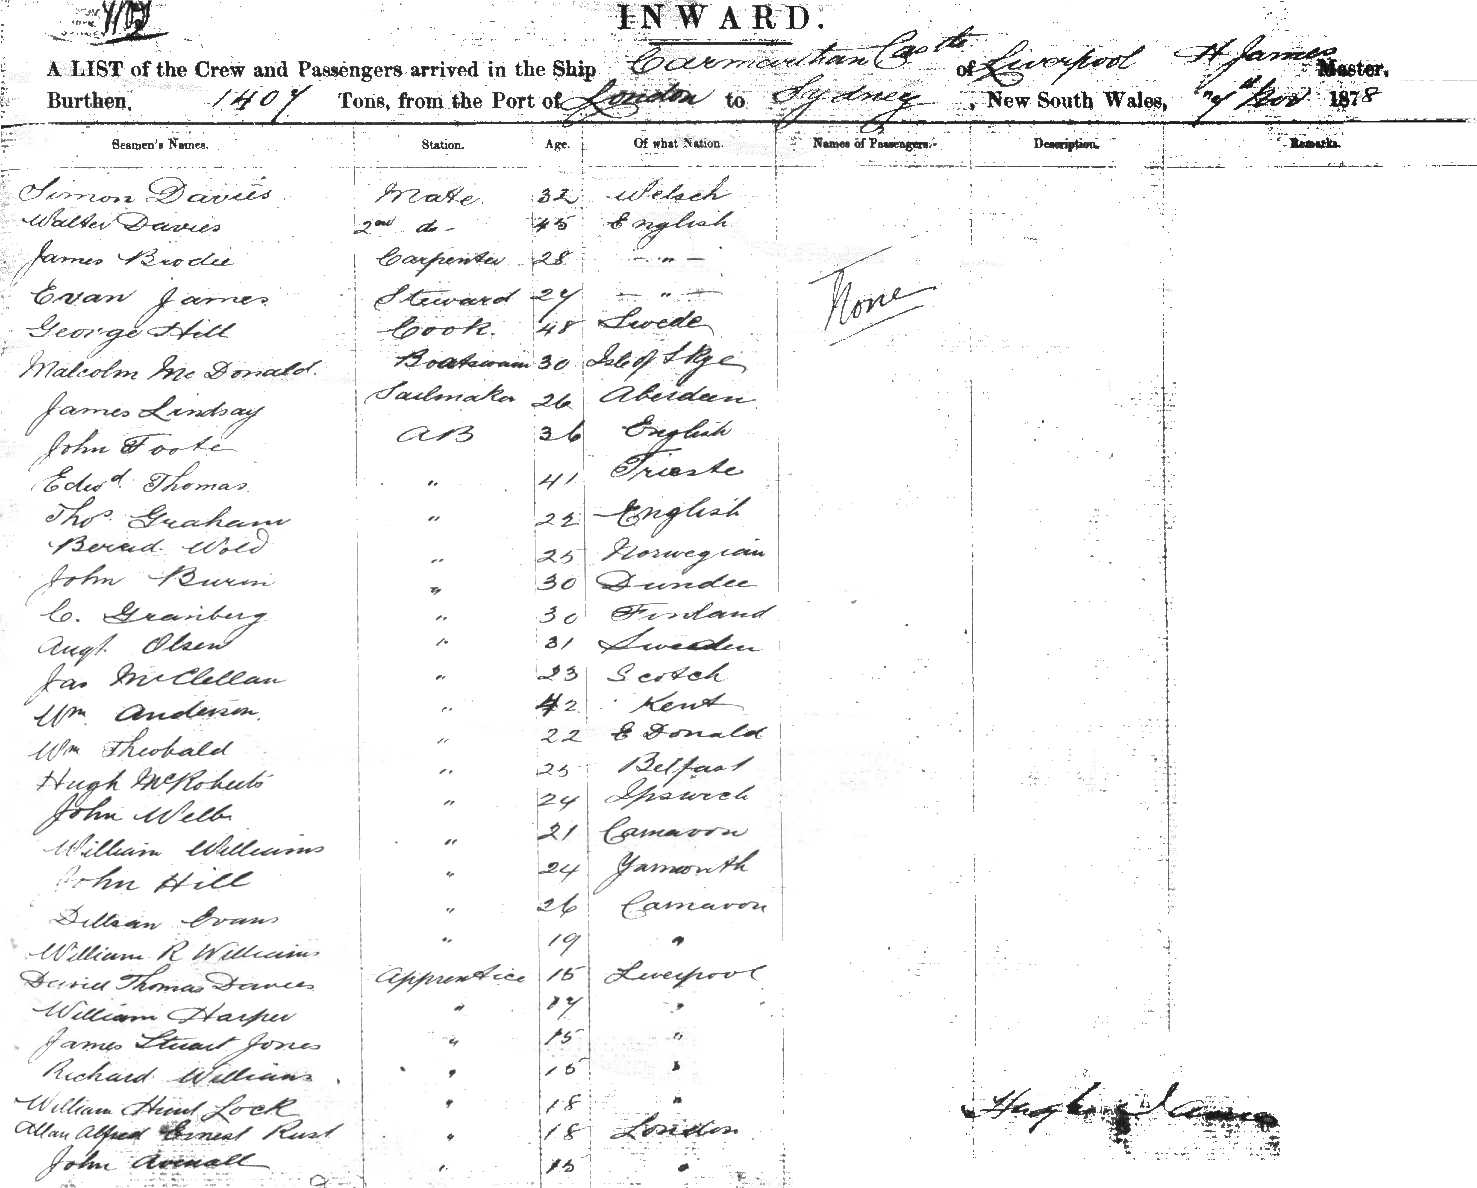 INWARD.
A LIST of the Crew and Passengers arrived in the Ship Carmarthan Castle of Liverpool H James Master,
Burthen, 1407 Tons, from the Port of London to Sydney, New South Wales, 7th Nov 1878
Seamen's Names. Station. Age. Of what Nation. Names of Passengers. Description. Remarks.
Simon Davies Mate 32 Welsch
Walter Davies 2nd do - 45 English
James Brodie Carpenter 28 - " -
Evan James Steward 27 - " -
None
George Hill Cook. 48 Swede
Malcolm McDonald. Boatswain 30 Isle of Skye
James Lindsay Sailmaker 26 Aberdeen
John Foote AB 36 English
Edwd Thomas " 41 Trieste
Thos. Graham " 22 English
Wold " 25 Norwegian
John " 30 Dundee
C. Granberg " 30 Finland
Augt. Olsen " 31 Sweeden
Jas McClellan " 23 Scotch
Wm. Anderson. " 42 Kent
Wm Theobald " 22 E Donald
Hugh McRoberts " 25 Belfast
John Webb " 24 Ipswich
William Williams " 21 Carnavon
John Hill " 24 Yarmouth
Evans " 26 Carnavon
William R Williams " 19 "
David Thomas Davies Apprentice 15 Liverpool
William Harper " 17 "
James Stuart Jones " 15 "
Richard Williams " 15 "
William Hunt Lock " 18 "
Hugh James
Allan Alfred Ernest Rust " 18 London
John Avenall " 15 "